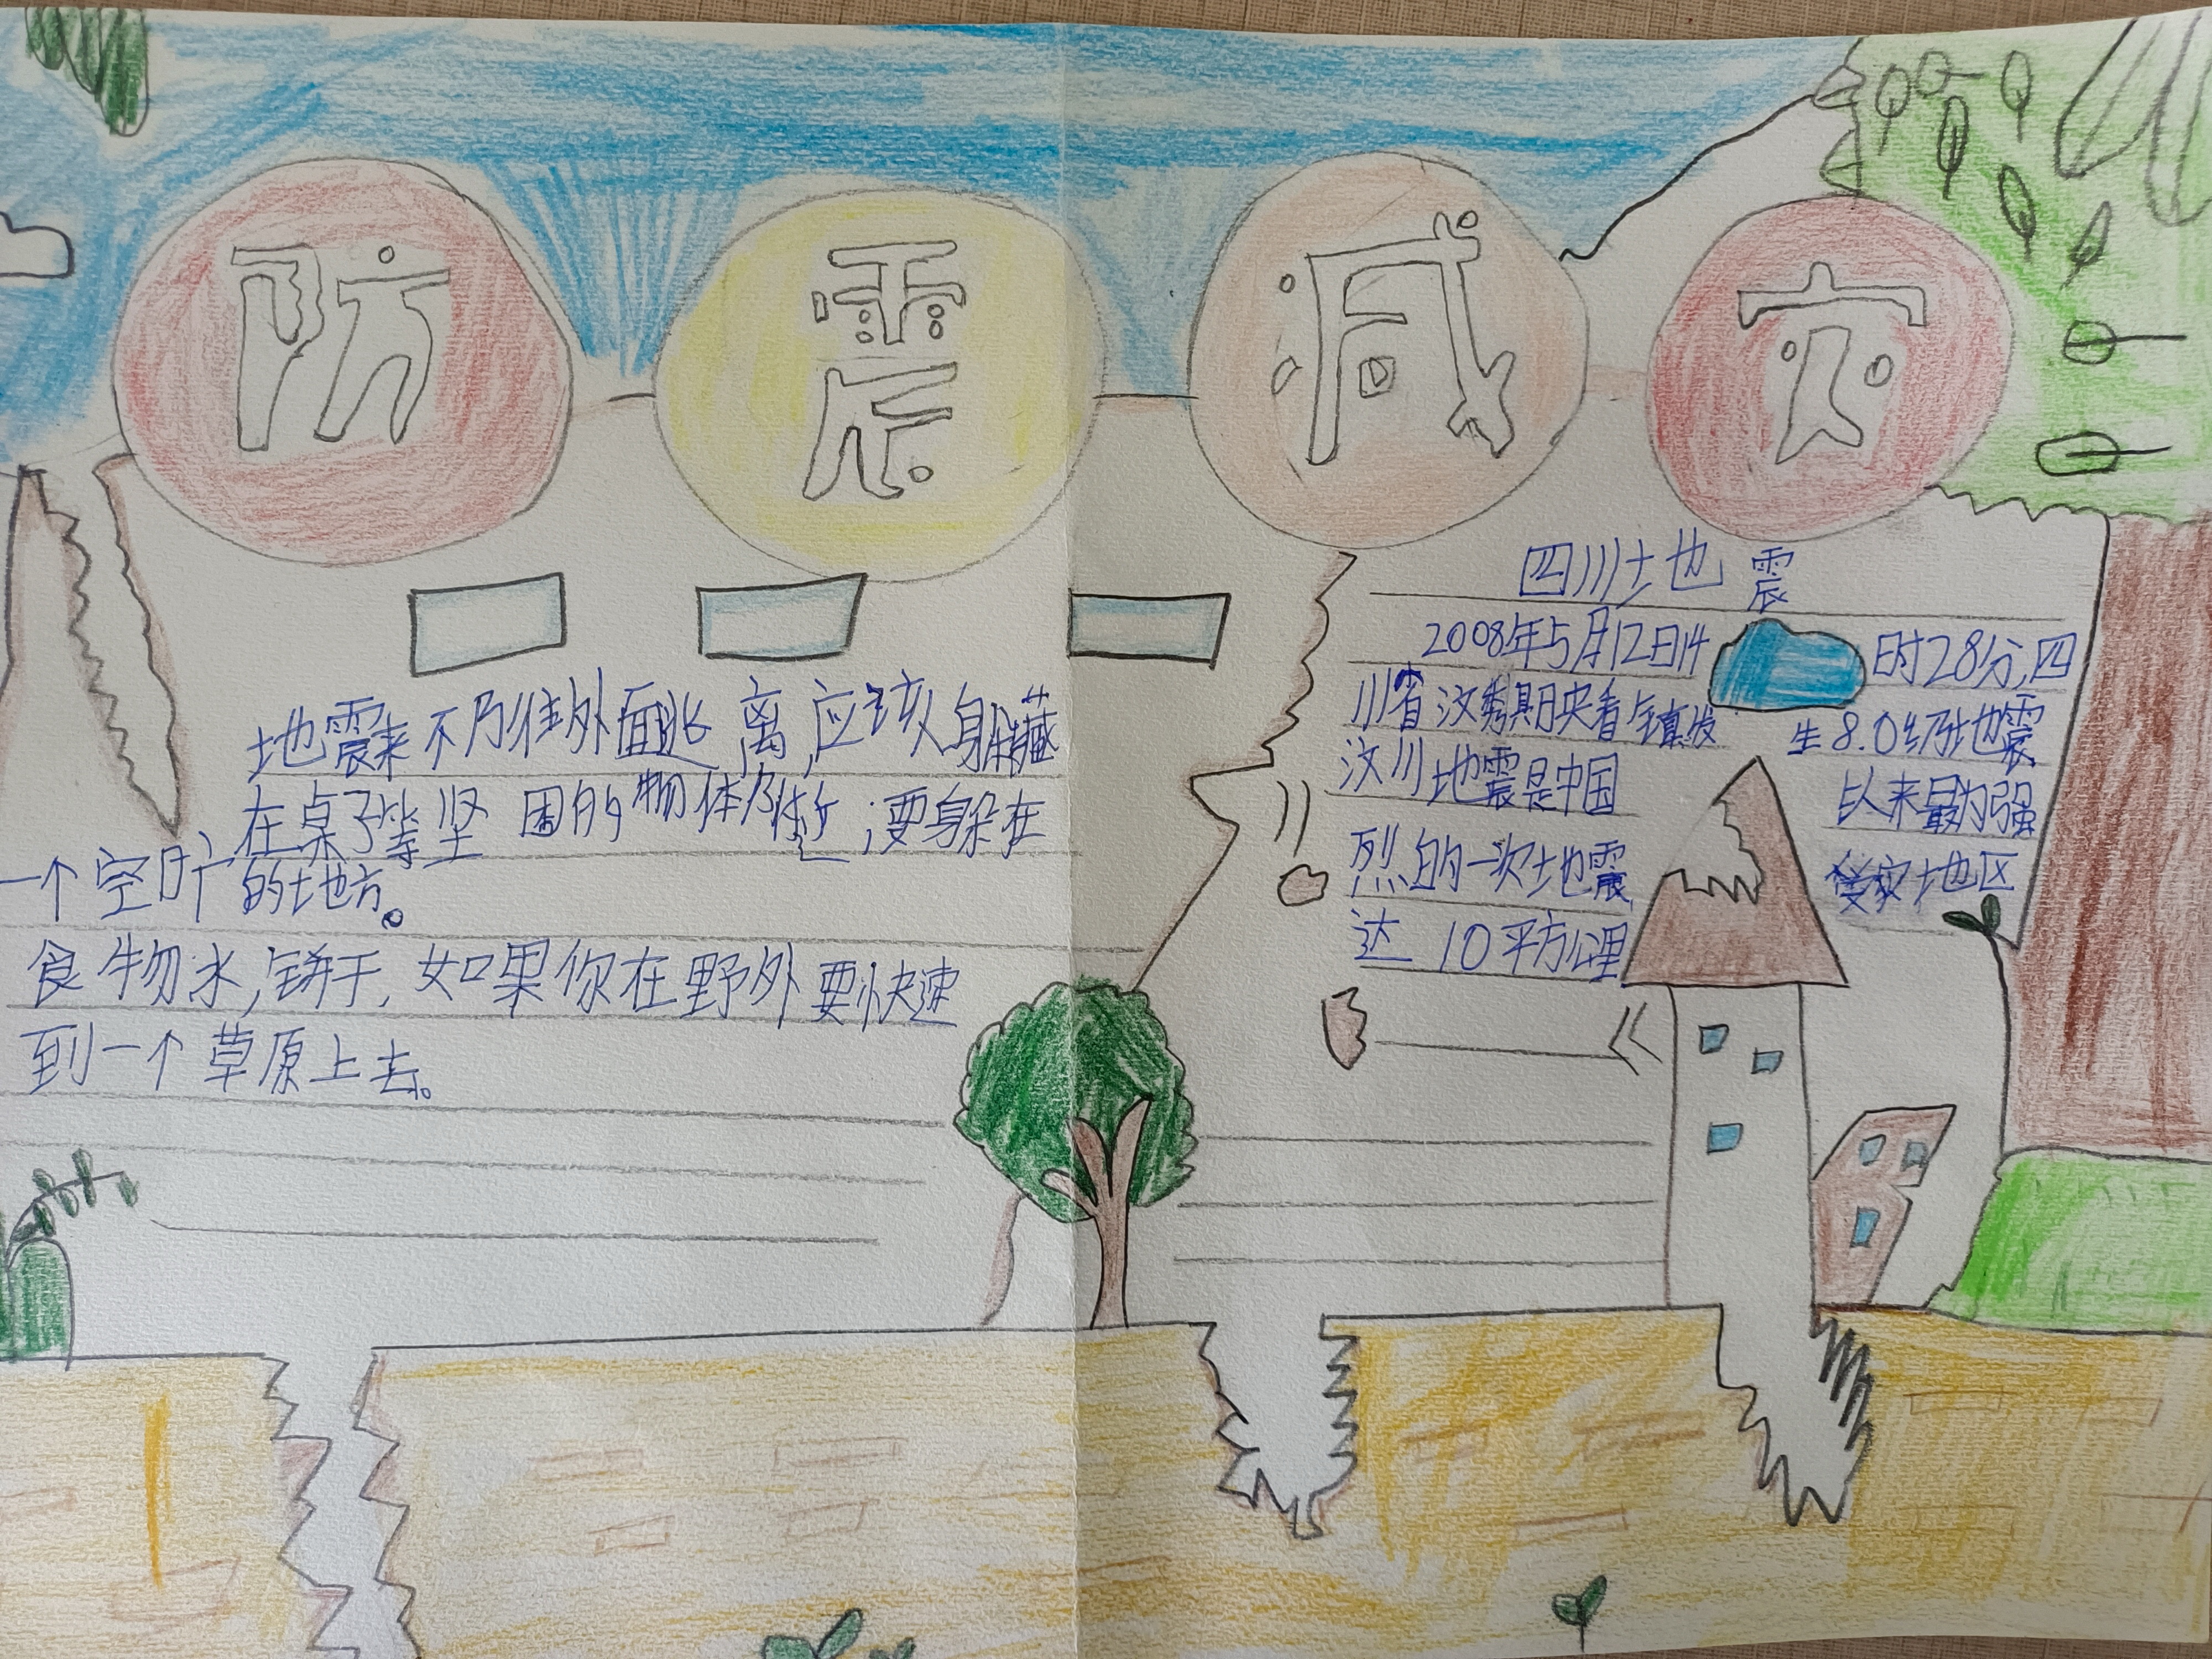 防震减灾
地震来不乃往外面逃离,应该躲藏
在桌子等坚固的物体附近;要躲在
一个空旷的地方。
食物水,饼干,如果你在野外要快速
到一个草原上去。
四川地震
2008年5月12日14时28分,四
川省汶秀期央看镇发生8.0级地震
汶川地震是中国以来最为强
烈的一次地震,受灾地区
达10平方公里